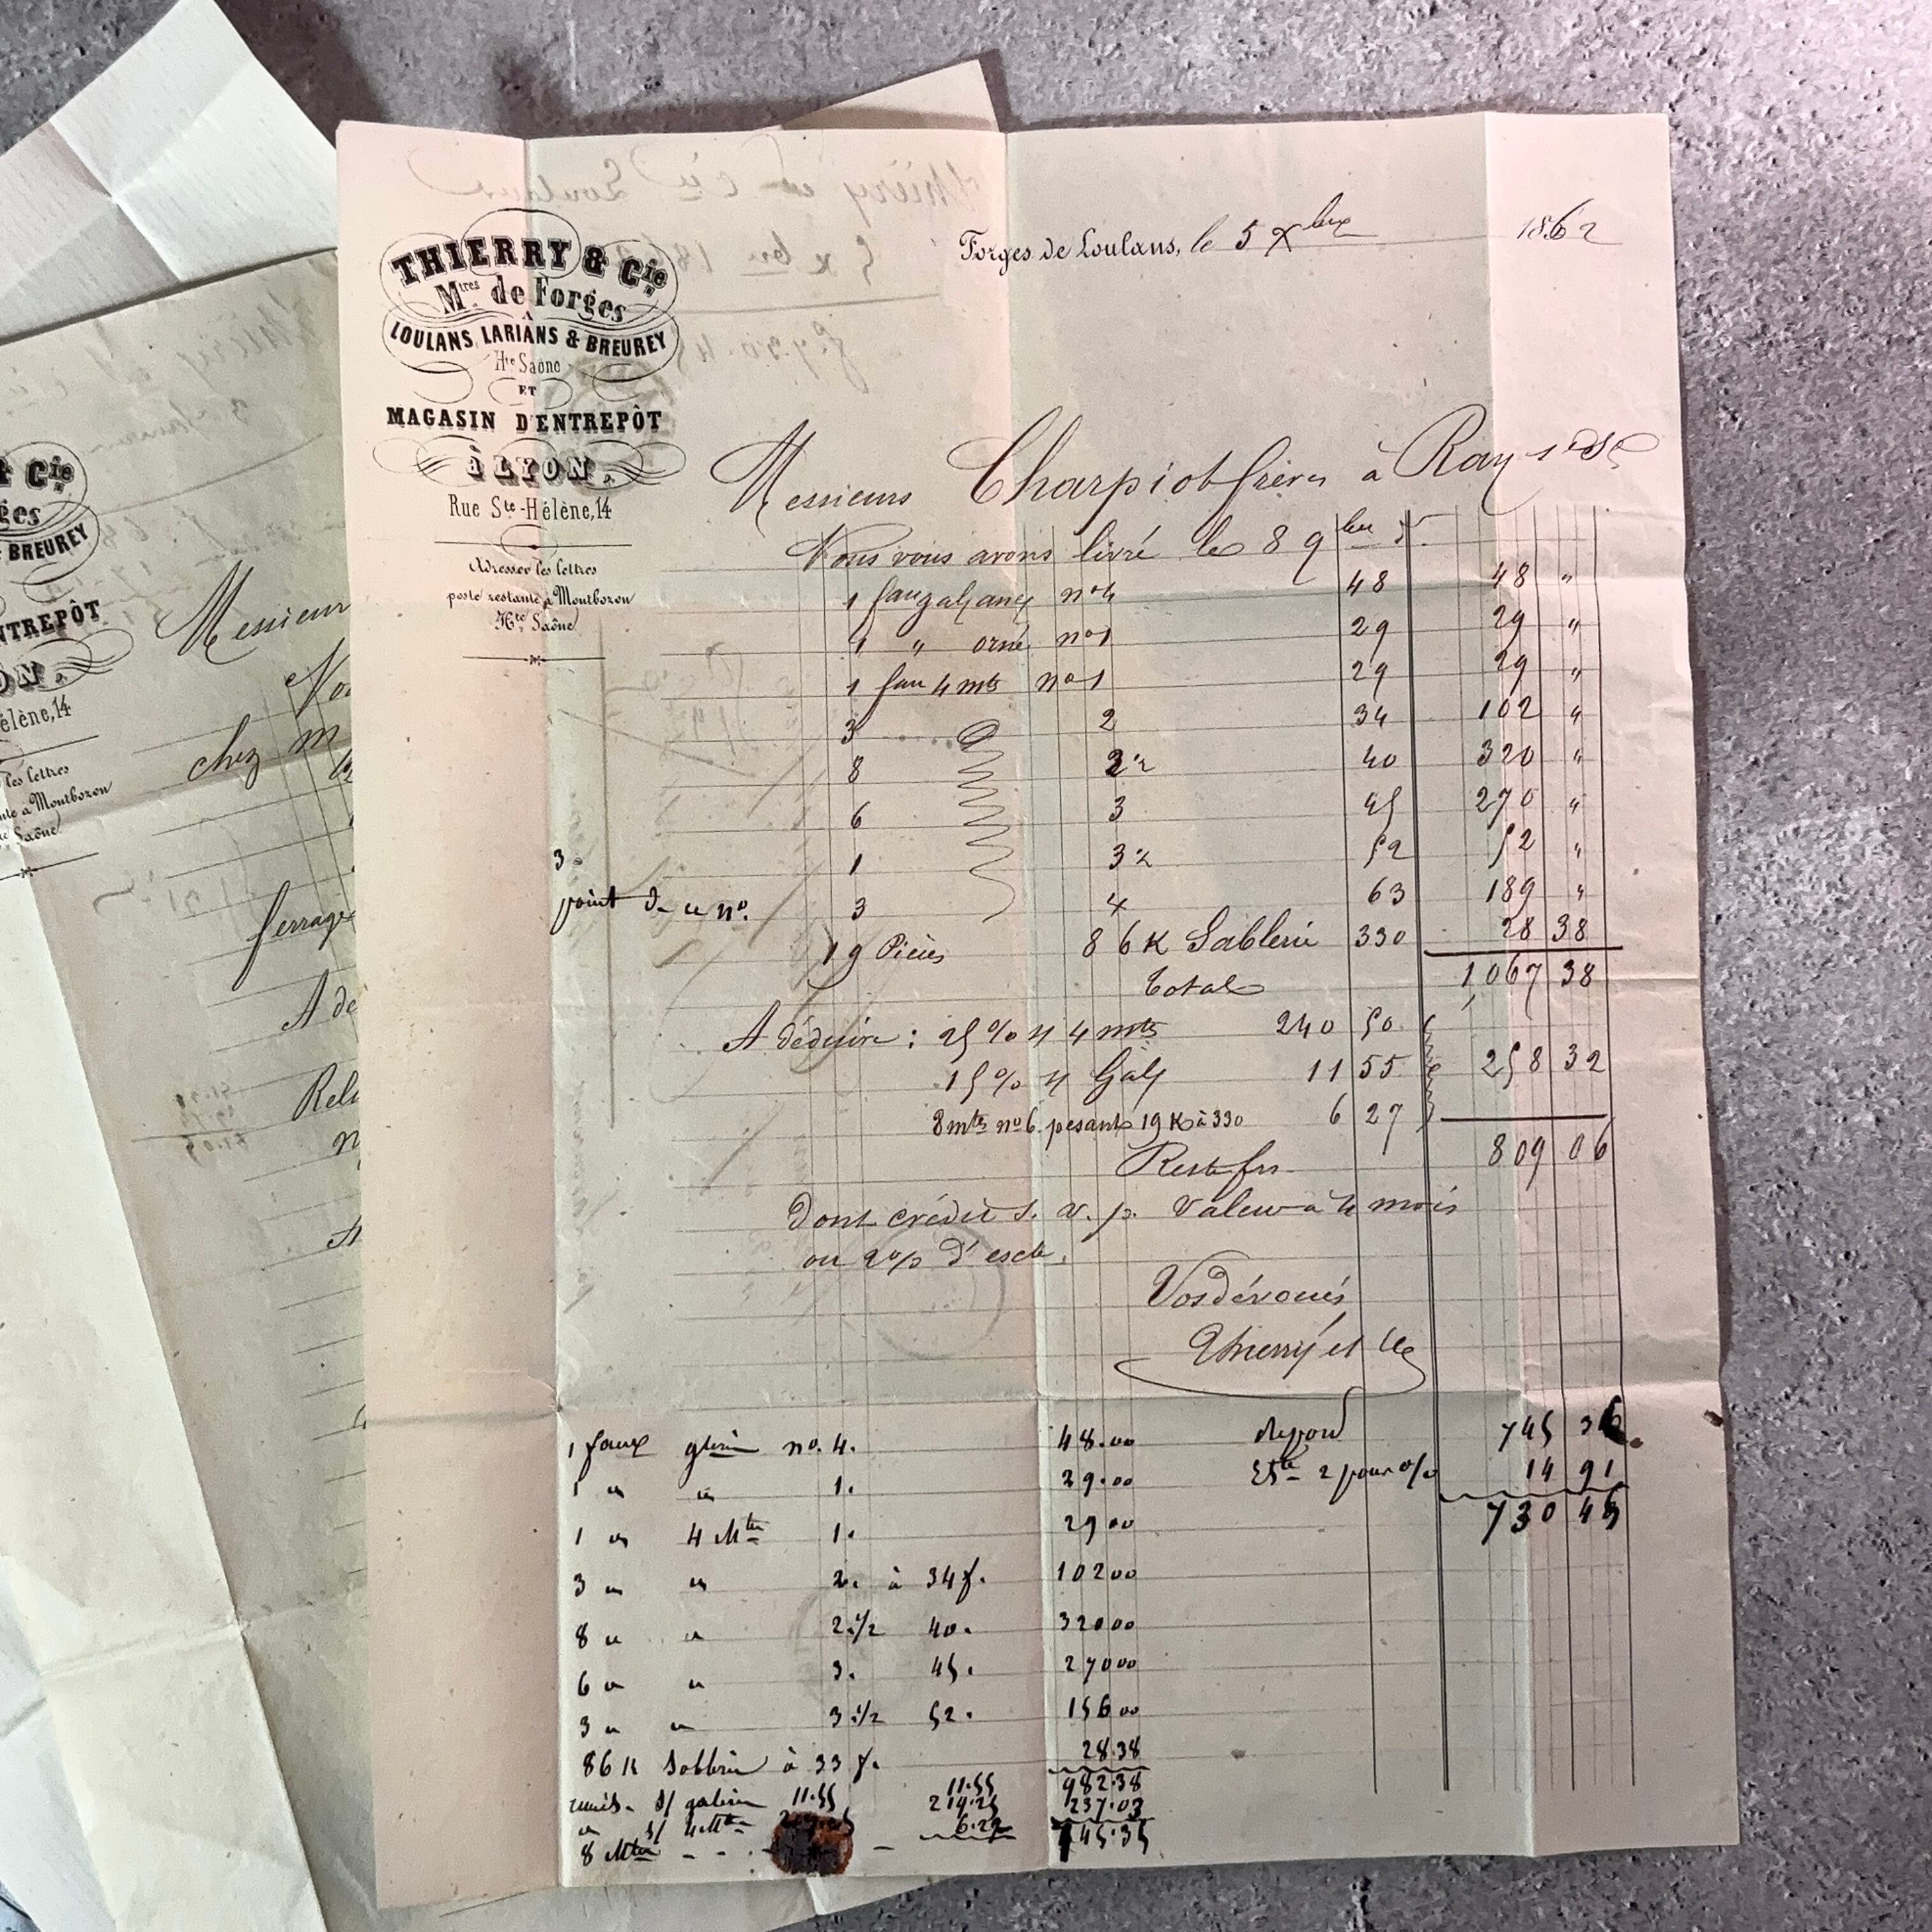 THIERRY & Cie
Mtres de Forges
A
LOULANS, LARIANS & BREUREY
Hte Saône
ET
MAGASIN D'ENTREPÔT
à LYON
Rue Ste-Hélène, 14
Adresser les lettres
poste restante à Montbozon
Hte Saône
Forges de Loulans, le 5 Xbre 1862
Messieurs Charpiot frères à Ray
Nous vous avons livré le 8 9bre
1 n°4 48 48 "
1 " orné n°1 29 29 "
1 4 mts n°1 29 29 "
3 2 34 102 "
8 2½ 40 320 "
6 3 45 270 "
3.
1 3½ 52 52 "
point de ce n°.
3 4 63 189 "
19 Pièces 86 K Sablerie 330 28 38
Total 1,067 38
A déduire : 25 % s/ 4 mts 240 50
15 % s/ Gal 11 55 258 32
8 mts n°6 pesant 19 K à 330 6 27
Reste frs 809 06
Dont crédit s. v. p. valeur à 4 mois
ou 2 % d'escte.
Vos dévoués
Thierry et Cie
1 faux no. 4. 48.00
1 " " 1. 29.00
1 " 4 Mtes 1. 29 00
3 " " 2. à 34 f. 102 00
8 " " 2.1/2 40. 320 00
6 " " 3. 45. 270 00
3 " " 3.1/2 52. 156 00
86 K Sablerie à 33 f. 28.38
982.38
s/ 11.55 11.55
" s/ 4 Mtes 214.25 237.03
8 Mtes 6.27 745.35
745 36
Escte 2 pour o/o 14 91
730 45
& Cie
BREUREY
NTREPÔT
ON
élène, 14
les lettres
nte à Montbozon
Saône
Messieur
chez m
ferrage
A de